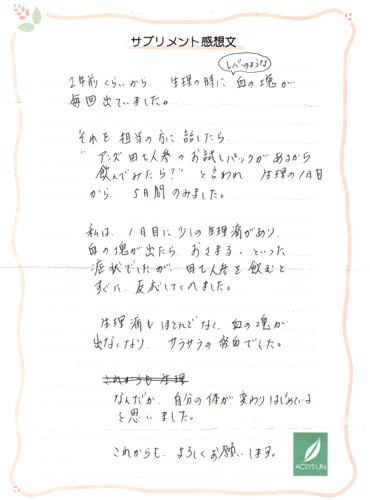 サプリメント感想文
2年前くらいから、生理の時に血の塊が
レバーのような
毎回出ていました。
それを担当の方に話したら、
"アンズ田七人参のお試しパックがあるから
飲んでみたら?"と言われ、生理の1日目
から、5日間のみました。
私は、1日目に少し生理痛があり、
血の塊が出たら、おさまる、といった
症状でしたが、田七人参を飲むと
すぐに、反応してくれました。
生理痛もほとんどなく、血の塊が
出なくなり、サラサラの経血でした。
これからも生理
なんだか、自分の体が変わりはじめている
と思いました。
これからも、よろしくお願いします。
ACSYSUN